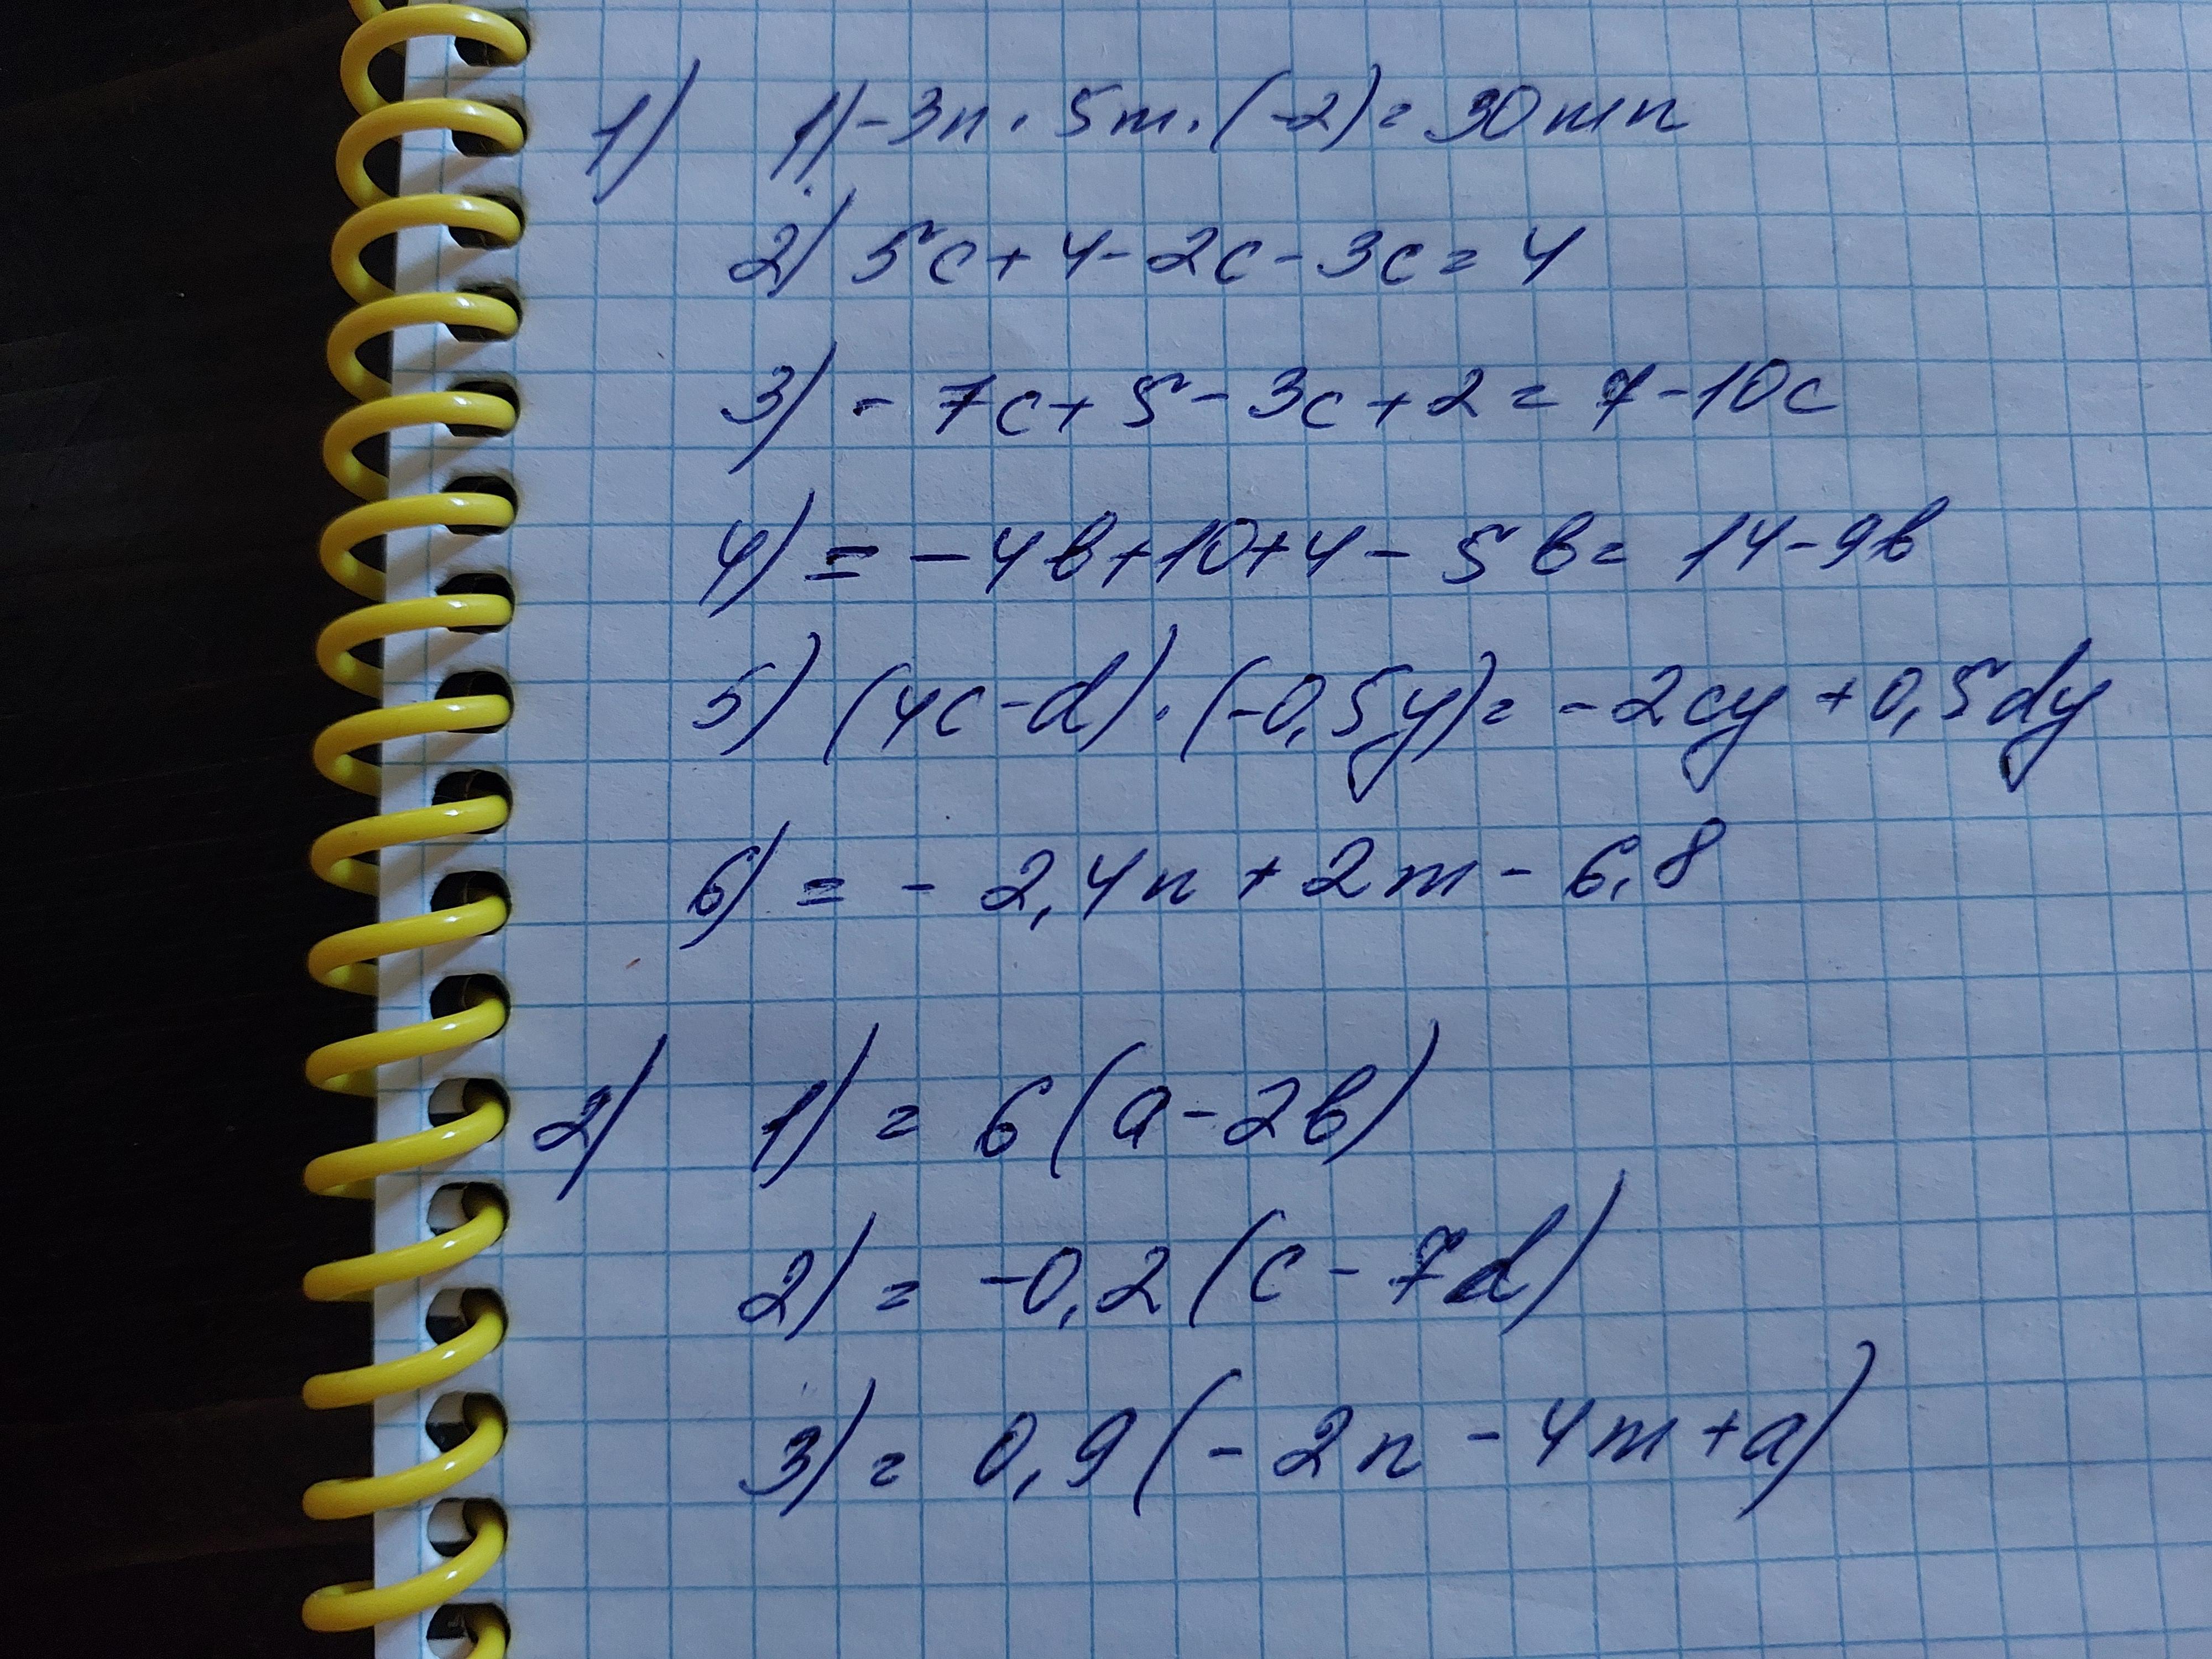 1) 1) -3n · 5m · (-2) = 30mn
2) 5c + 4 - 2c - 3c = 4
3) - 7c + 5 - 3c + 2 = 7 - 10c
4) = - 4b + 10 + 4 - 5b = 14 - 9b
5) (4c - d) · (-0,5y) = - 2cy + 0,5dy
6) = - 2,4n + 2m - 6,8
2) 1) = 6(a - 2b)
2) = -0,2(c - 7d)
3) = 0,9(- 2n - 4m + a)